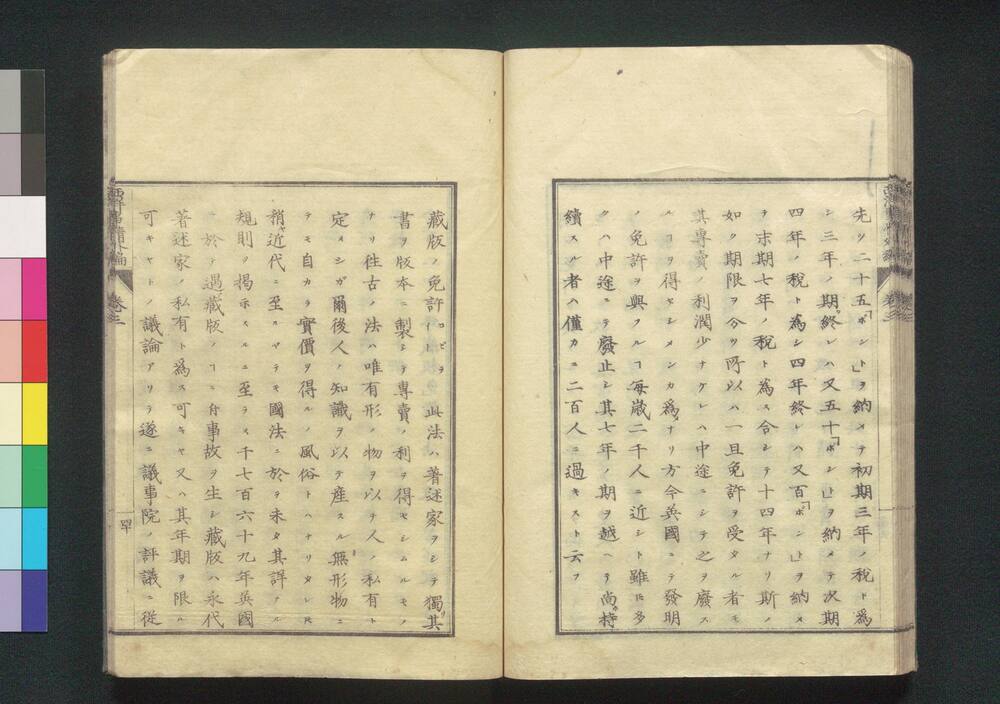 先ツ二十五「ポンド」ヲ納メテ初期三年ノ税ト為
シ三年ノ期終レハ又五十「ポンド」ヲ納メテ次期
四年ノ税ト為シ四年終レハ又百「ポンド」ヲ納メ
ヲ末期七年ノ税ト為ス合シテ十四年ナリ斯ノ
如ク期限ヲ分ツ所以ハ一旦免許ヲ受タル者モ
其專賣ノ利潤少ナケレハ中途ニシテ之ヲ廢ス
ルヿヲ得セシメンカ為メナリ方今英國ニテ發明
ノ免許ヲ與フルヿ毎歳二千人ニ近シト雖𪜈多
クハ中途ニテ廢止シ其七年ノ期ヲ越ヘテ尚持
續スル者ハ僅カニ二百人ニ過キスト云フ
藏版ノ免許コピライト 此法ハ著述家ヲシテ獨リ其
書ヲ版本ニ製シテ專賣ノ利ヲ得セシムルモノ
ナリ往古ノ法ハ唯有形ノ物ヲ以テ人ノ私有ト
定メシガ爾後人ノ知識ヲ以テ産スル無形物ニ
テモ自カラ實價ヲ得ルノ風俗トハナリタレ𪜈
稍ヤ近代ニ至ルマテモ國法ニ於テ未タ其詳ナル
規則ヲ掲示スルニ至ラス千七百六十九年英國
ニ於テ過藏版ノヿニ付事故ヲ生シ藏版ハ永代
著述家ノ私有ト為ス可キヤ又ハ其年期ヲ限ル
可キヤトノ議論アリテ遂ニ議事院ノ評議ニ從
西洋事情外編
卷之三